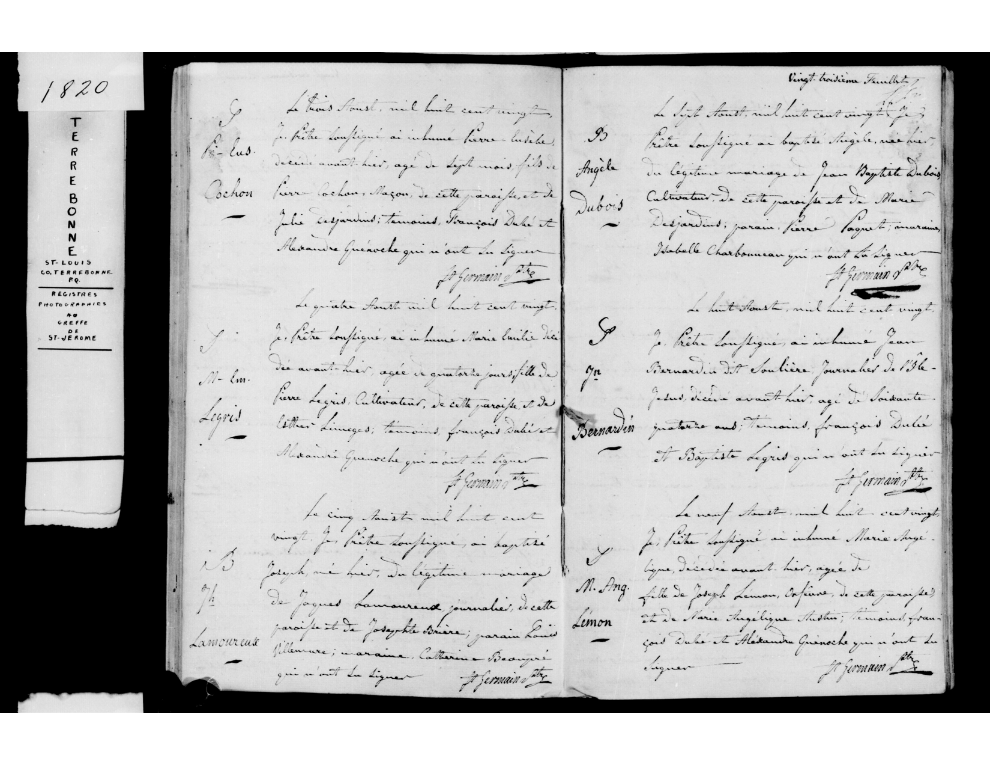 1820
TERREBONNE
ST-LOUIS
CO. TERREBONNE
P.Q.
REGISTRES
PHOTOGRAPHIES
AU
GREFFE
DE
ST-JÉROME
S
Pre-Eus.
Cochon
Le trois Aoust, mil huit cent vingt,
Je Prêtre Soussigné, ai inhumé Pierre Eusèbe,
décédé avant hier, agé de Sept mois, fils de
Pierre Cochon, Maçon, de cette paroisse, et de
Julie Desjardins; temoins, François Dubé et
Alexandre Guénoche qui n'ont su Signer
St Germain Ptre
S
M.-Em.
Legris
Le quatre Aoust mil huit cent vingt,
Je, Prêtre Soussigné, ai inhumé Marie Emélie décé
dée avant hier, agée de quatorze jours, fille de
Pierre Legris, Cultivateur, de cette paroisse et de
Esther Limoges; temoins, françois Dubé et
Alexandre Guenoche qui n'ont su Signer
St Germain Ptre
B
Jh
Lamoureux
Le cinq Aoust mil huit cent
vingt, Je, Prêtre Soussigné, ai baptisé
Joseph, né hier, du légitime mariage
de Jaques Lamoureux journalier, de cette
paroisse et de Josephte parain Louis
Villemure; maraine, Catherine Beaupré
qui n'ont su Signer
St Germain Ptre
Vingt-troisième Feuillet
B
Angèle
Dubois
Le Sept Aoust, mil huit cent vingt, Je,
Prêtre Soussigné ai baptisé Angèle, née hier
du légitime mariage de Jean Baptiste Dubois
Cultivateur, de cette paroisse et de Marie
Desjardins; parain, Pierre Paquet; maraine,
Isabelle Charbonneau qui n'ont su Signer
St Germain Ptre
S
Jn
Bernardin
Le huit Aoust, mil huit cent vingt,
Je, Prêtre Soussigné, ai inhumé Jean
Bernardin dit Soulière Journalier de l'Isle-
Jesus, décédé avant hier, agé de Soixante-
quatorze ans; Temoins, françois Dubé
et Baptiste Legris qui n'ont su Signer
St Germain Ptre
S
M. Ang.
Lémon
Le neuf Aoust, mil huit cent vingt
Je, Prêtre Soussigné ai inhumé Marie Angé-
lique, décédée avant hier, agée de
fille de Joseph Lemon, de cette paroisse
et de Marie Angélique temoins, fran-
çois Dubé et Alexandre Guénoche qui n'ont su
Signer
St Germain Ptre